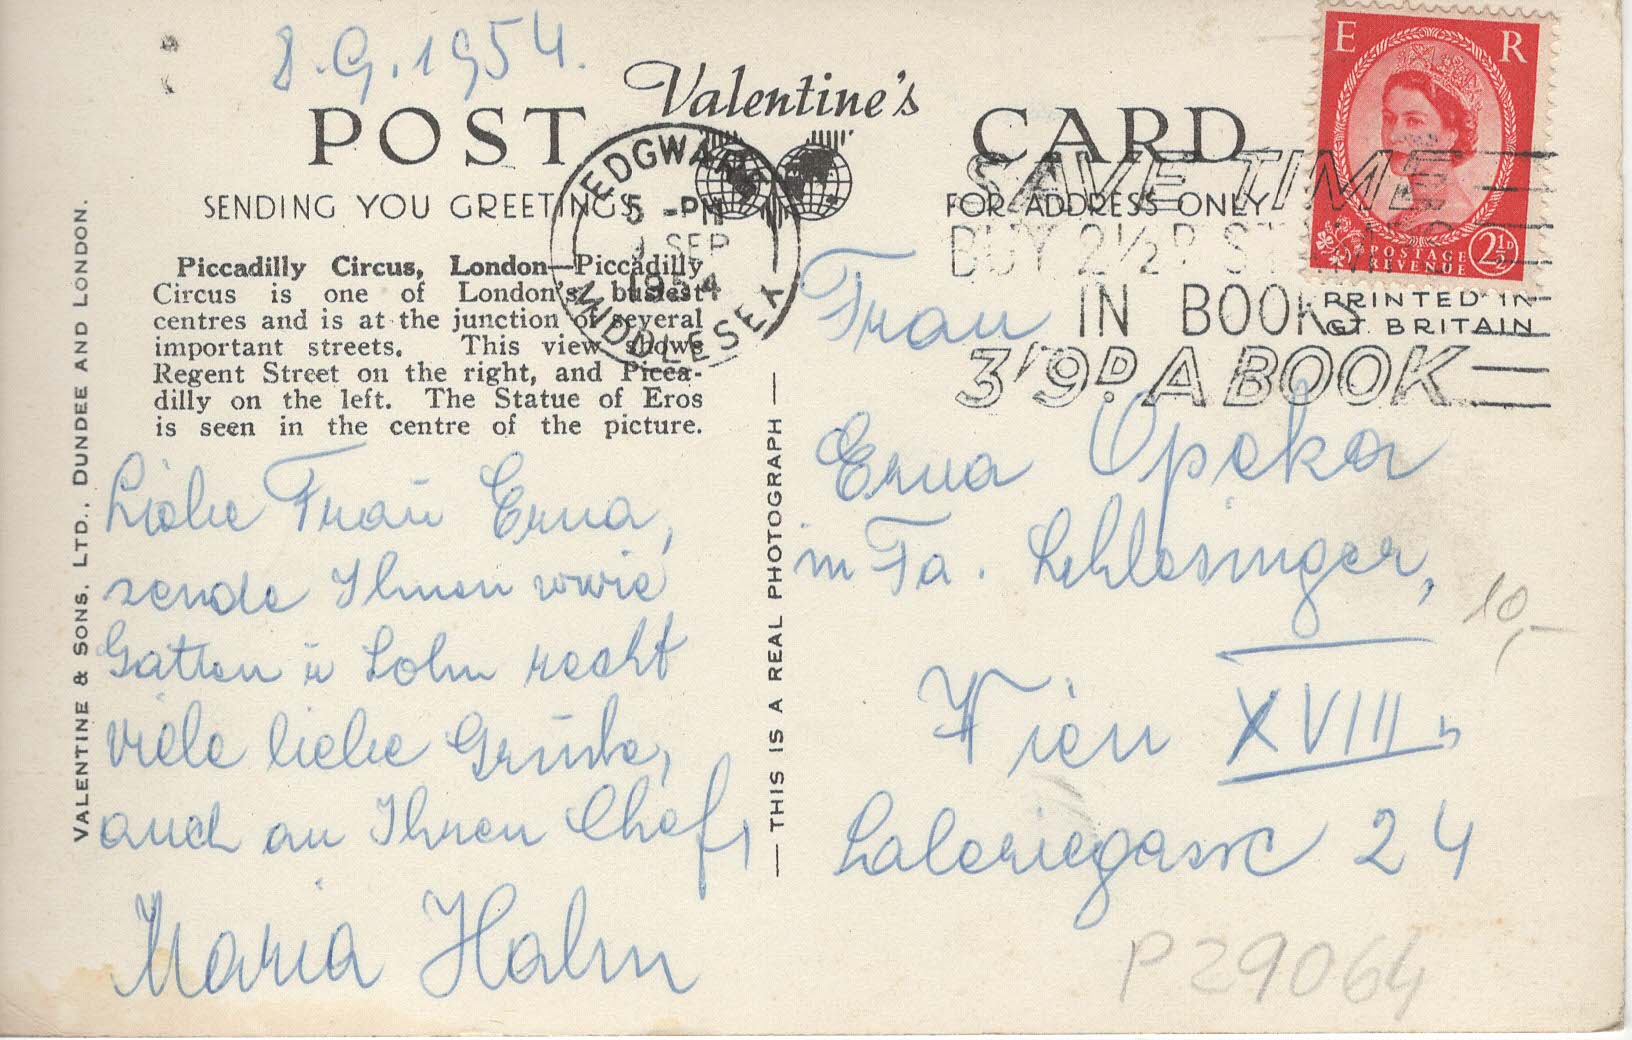 8.9.1954.
Valentine's
POST CARD
SENDING YOU GREETINGS
FOR ADDRESS ONLY
E R
POSTAGE
REVENUE
2½D
EDGWARE
5 -PM
9 SEP
1954
MIDDLESEX
SAVE TIME
BUY 2½D STAMPS
IN BOOKS
3/9D. A BOOK
PRINTED IN
GT. BRITAIN
Piccadilly Circus, London—Piccadilly
Circus is one of London's busiest
centres and is at the junction of several
important streets. This view shows
Regent Street on the right, and Picca-
dilly on the left. The Statue of Eros
is seen in the centre of the picture.
VALENTINE & SONS. LTD., DUNDEE AND LONDON.
— THIS IS A REAL PHOTOGRAPH —
Liebe Frau Erna,
sende Ihnen sowie
Gatten u Sohn recht
viele liebe Grüße,
auch an Ihren Chef,
Maria Hahn
Frau
Erna Opeka
in Fa. Schlesinger,
Wien XVIII
24
10,-
P29064